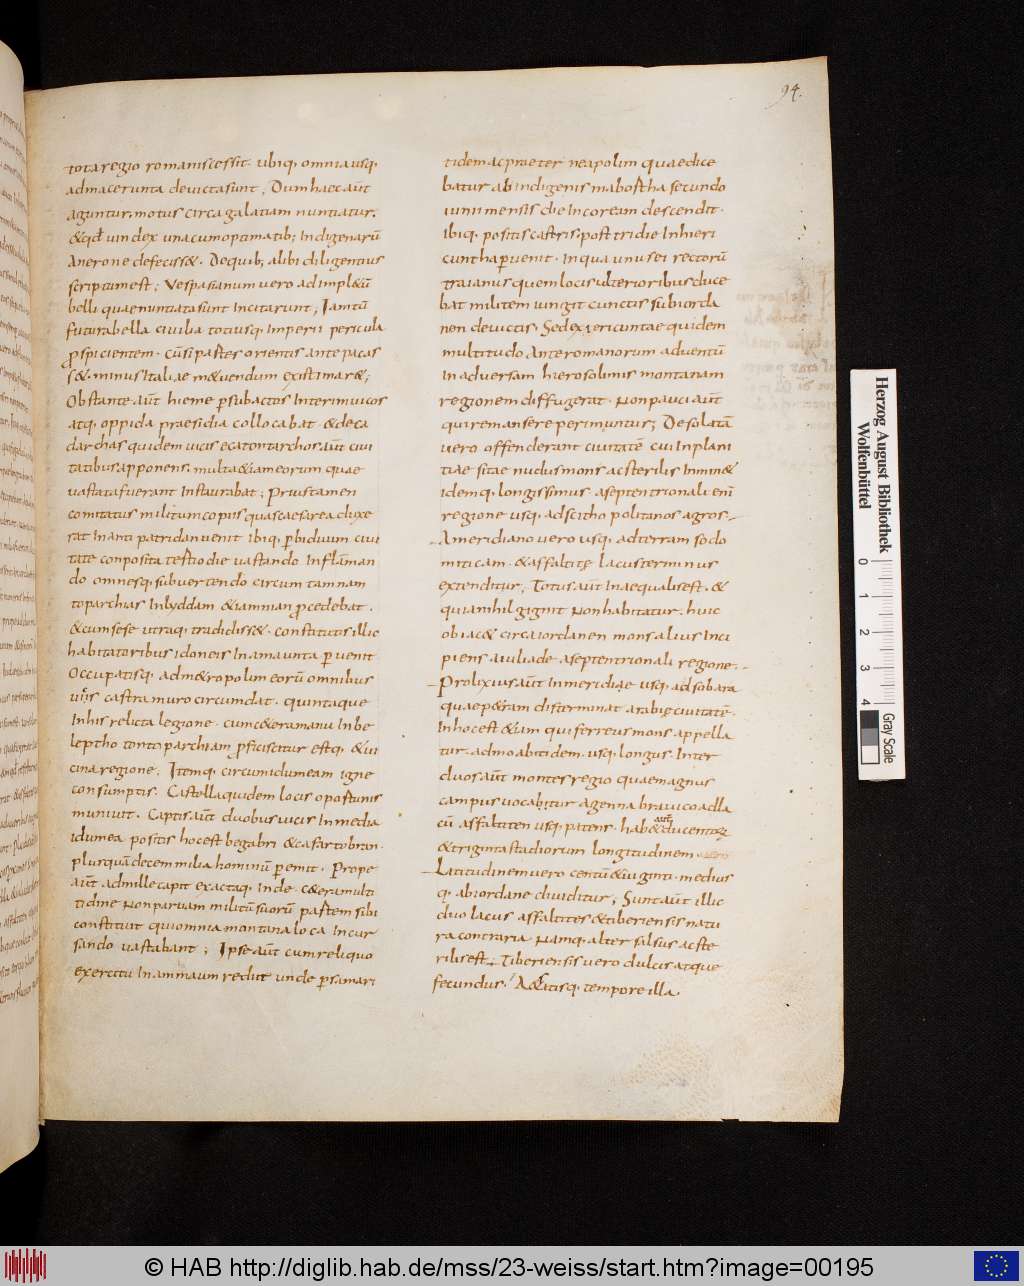 94.
tota regio romanis cessit. ubiq; omnia usq;
ad macerunta devicta sunt; Dum haec aūt
aguntur, motus circa galatiam nuntiatur.
& qđ uindex una cum optimatib; Indigenarū
A nerone defeciss&. De quib; alibi diligentius
scriptum est; Vespasianum uero ad impl&ū
belli quae nuntiata sunt Incitarunt; Iam tū
futura bella ciuilia totiusq; Imperii pericula
ꝓspicientem. Cū si partes orientis ante pacas
s&. minus Italiae m&uendum existimar&;
Obstante aūt hieme ꝑ subactos Interim uicos
atq; oppida praesidia collocabat. & deca
darchas quidem uicis ecatontarchos aūt ciui
tatibus apponens. multa & iam eorum quae
uastata fuerant Instaurabat; Prius tamen
comitatus militum copiis quas caesarea duxe
rat In antipatridan uenit Ibiq; ꝑ biduum ciui
tate conposita tertio die uastando Inflāman
do omnesq; subuertendo circum tamnam
toparchias In lyddam & iamnian ꝓcedebat.
& cum sese utraq; tradidiss&. constitutis illic
habitatoribus idoneis In amaunta ꝑuenit
Occupatisq; ad m&ropolim eorū omnibus
uiis castra muro circumdat. quintaque
In his relicta legione. cum c&era manu In be
leptho ton toparchiam ꝓficiscitur estq; & ui
cina regione; Itemq; circum idumeam igne
consumptis. Castella quidem locis oportunis
muniuit. Captis aūt duobus uicis In media
idumea positis hoc est begabri & cafartobran.
plus quā decem milia hominū ꝑemit. Prope
aūt ad mille capit exactaq; Inde. c&era multi
tidine Non paruam militū suorū partem sibi
constituit qui omnia montana loca Incur
sando uastabant; Ipse aūt cum reliquo
exercitu In ammaum rediit unde ꝑ samari
tidem ac praeter neapolim quae dice
batur ab indigenis mabostha secundo
iunii mensis die In coream descendit.
Ibiq; positis castris. post tridie In hieri
cuntha ꝑuenit. In qua unus ei rectorū
traianus quem locis ulterioribus duce
bat militem iungit cunctis sub iorda
nen deuictis; Sed ex iericuntae quidem
multitudo Ante romanorum aduentū
In aduersam hierosolimis montanam
regionem diffugerat. Non pauci aūt
qui remansere perimuntur; Desolatā
uero offenderant ciuitatē cui In plani
tiae sitae nudus mons ac sterilis Inmin&
idemq; longissimus. a septentrionali enī
regione usq; ad scithopolitanos agros.
A meridiano uero usq; ad terram sodo
miticam. & asfaltitę lacus terminus
extenditur; Totus aūt Inaequalis est. &
quia nihil gignit Non habitatur. huic
obiac& circa iordanen mons alius Inci
piens a iuliade a septentrionali regione.
Prolixius aūt In meridiae usq; ad sobara
quae p&ram disterminat arabię ciuitatē.
In hoc est & iam qui ferreus mons appella
tur. ad moabitidem usq; longus. Inter
duos aūt montes regio quae magnus
campus uocabitur Agenna brauico ad la
cū asfaltiten usq; patens. hab& aūt ducentorū
& triginta stadiorum longitudinem.
Latitudinem uero centū & uiginti. medius
q; ab iordane diuiditur; Sunt aūt illic
duo lacus asfaltites & tiberiensis natu
ra contraria Namq; alter salsus ac ste
rilis est. Tiberiensis uero dulcis atque
fecundus. A&atisq; tempore illa.
Herzog August Bibliothek
Wolfenbüttel
0 1 2 3 4
Gray Scale
© HAB http://diglib.hab.de/mss/23-weiss/start.htm?image=00195